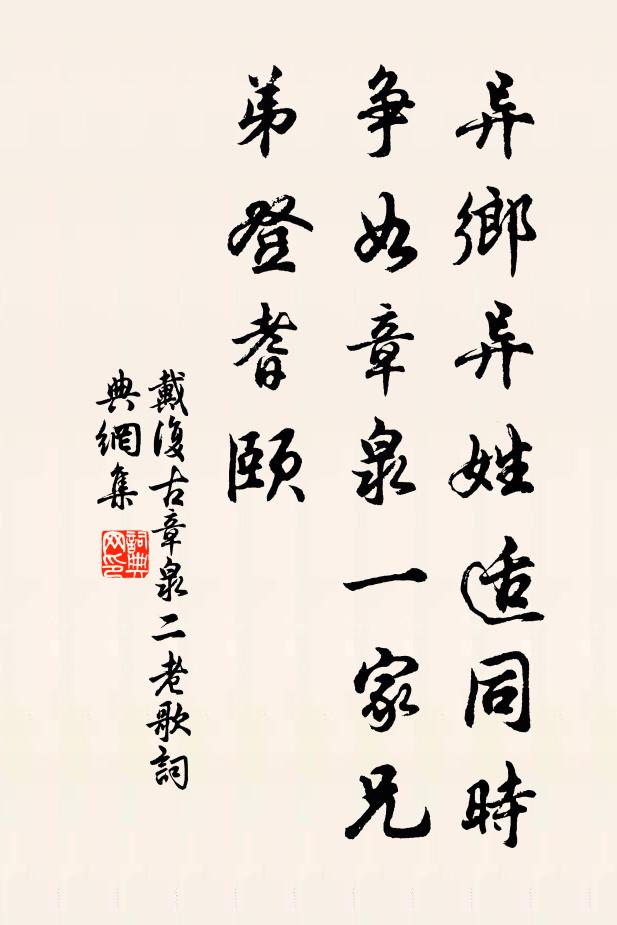 异鄉异姓适同時
争如章泉一家兄
弟登耆頤
戴復古章泉二老歌詞
典網集
詞典網印